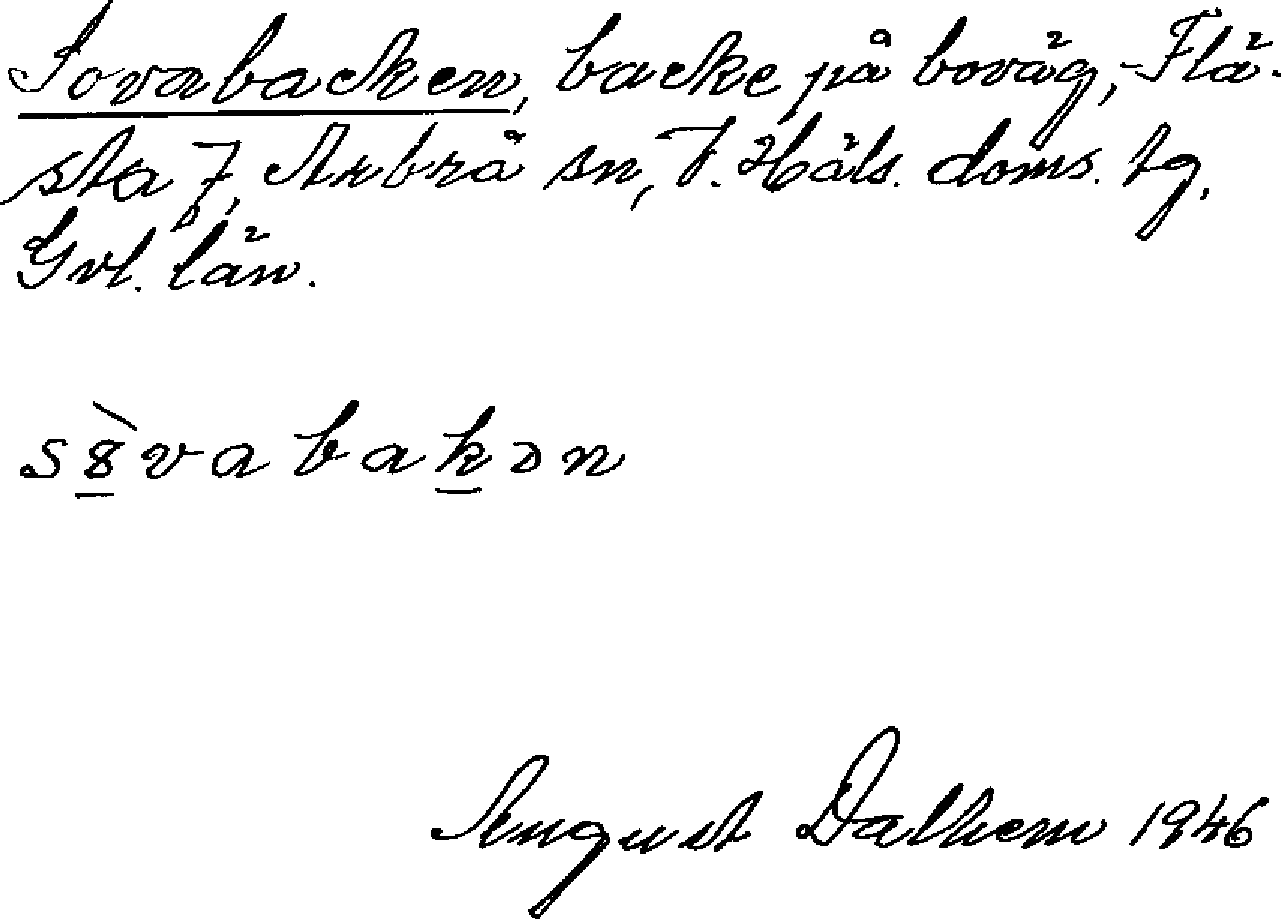 Sovabacken, backe på boväg, Flä-
sta 7, Arbrå sn, V. Häls. doms. tg,
Gvl. län.
August Dalhem 1946